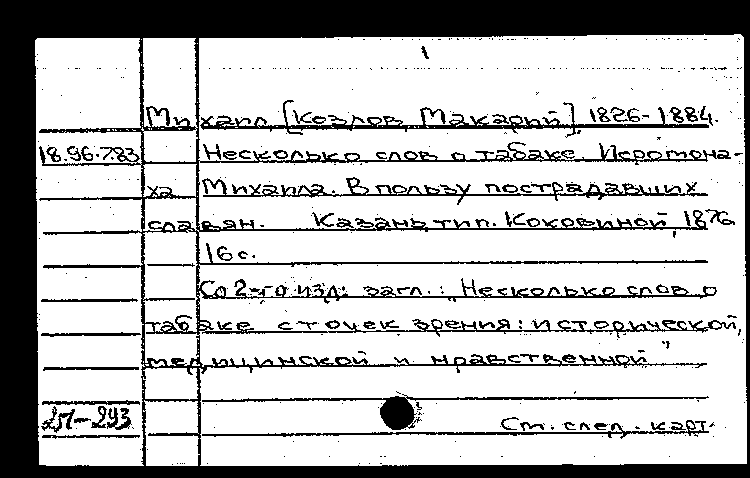 1
Михаил, [Козлов, Макарий], 1826-1884.
18.96.7.83 Несколько слов о табаке. Иеромона-
ха Михаила. В пользу пострадавших
славян. Казань, тип. Коковиной, 1876
16 с.
Со 2-го изд: загл.: „Несколько слов о
табаке с точек зрения: исторической,
медицинской и нравственной"
Ст. след. карт.